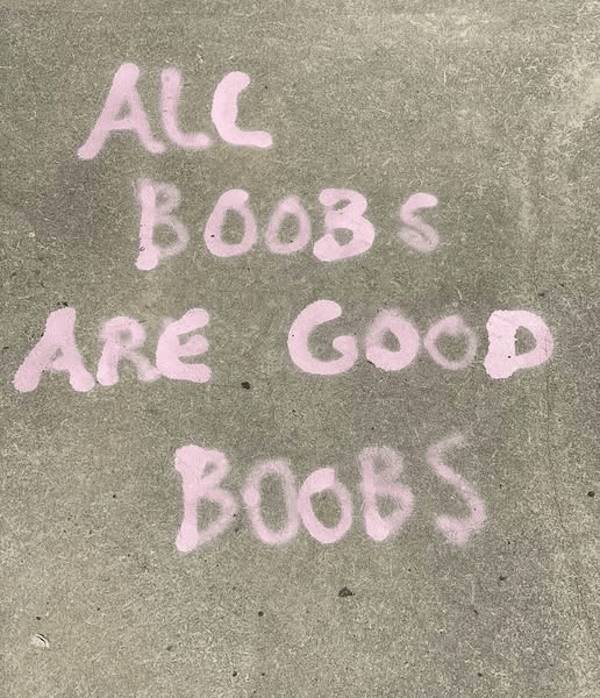 ALL
BOOBS
ARE GOOD
BOOBS